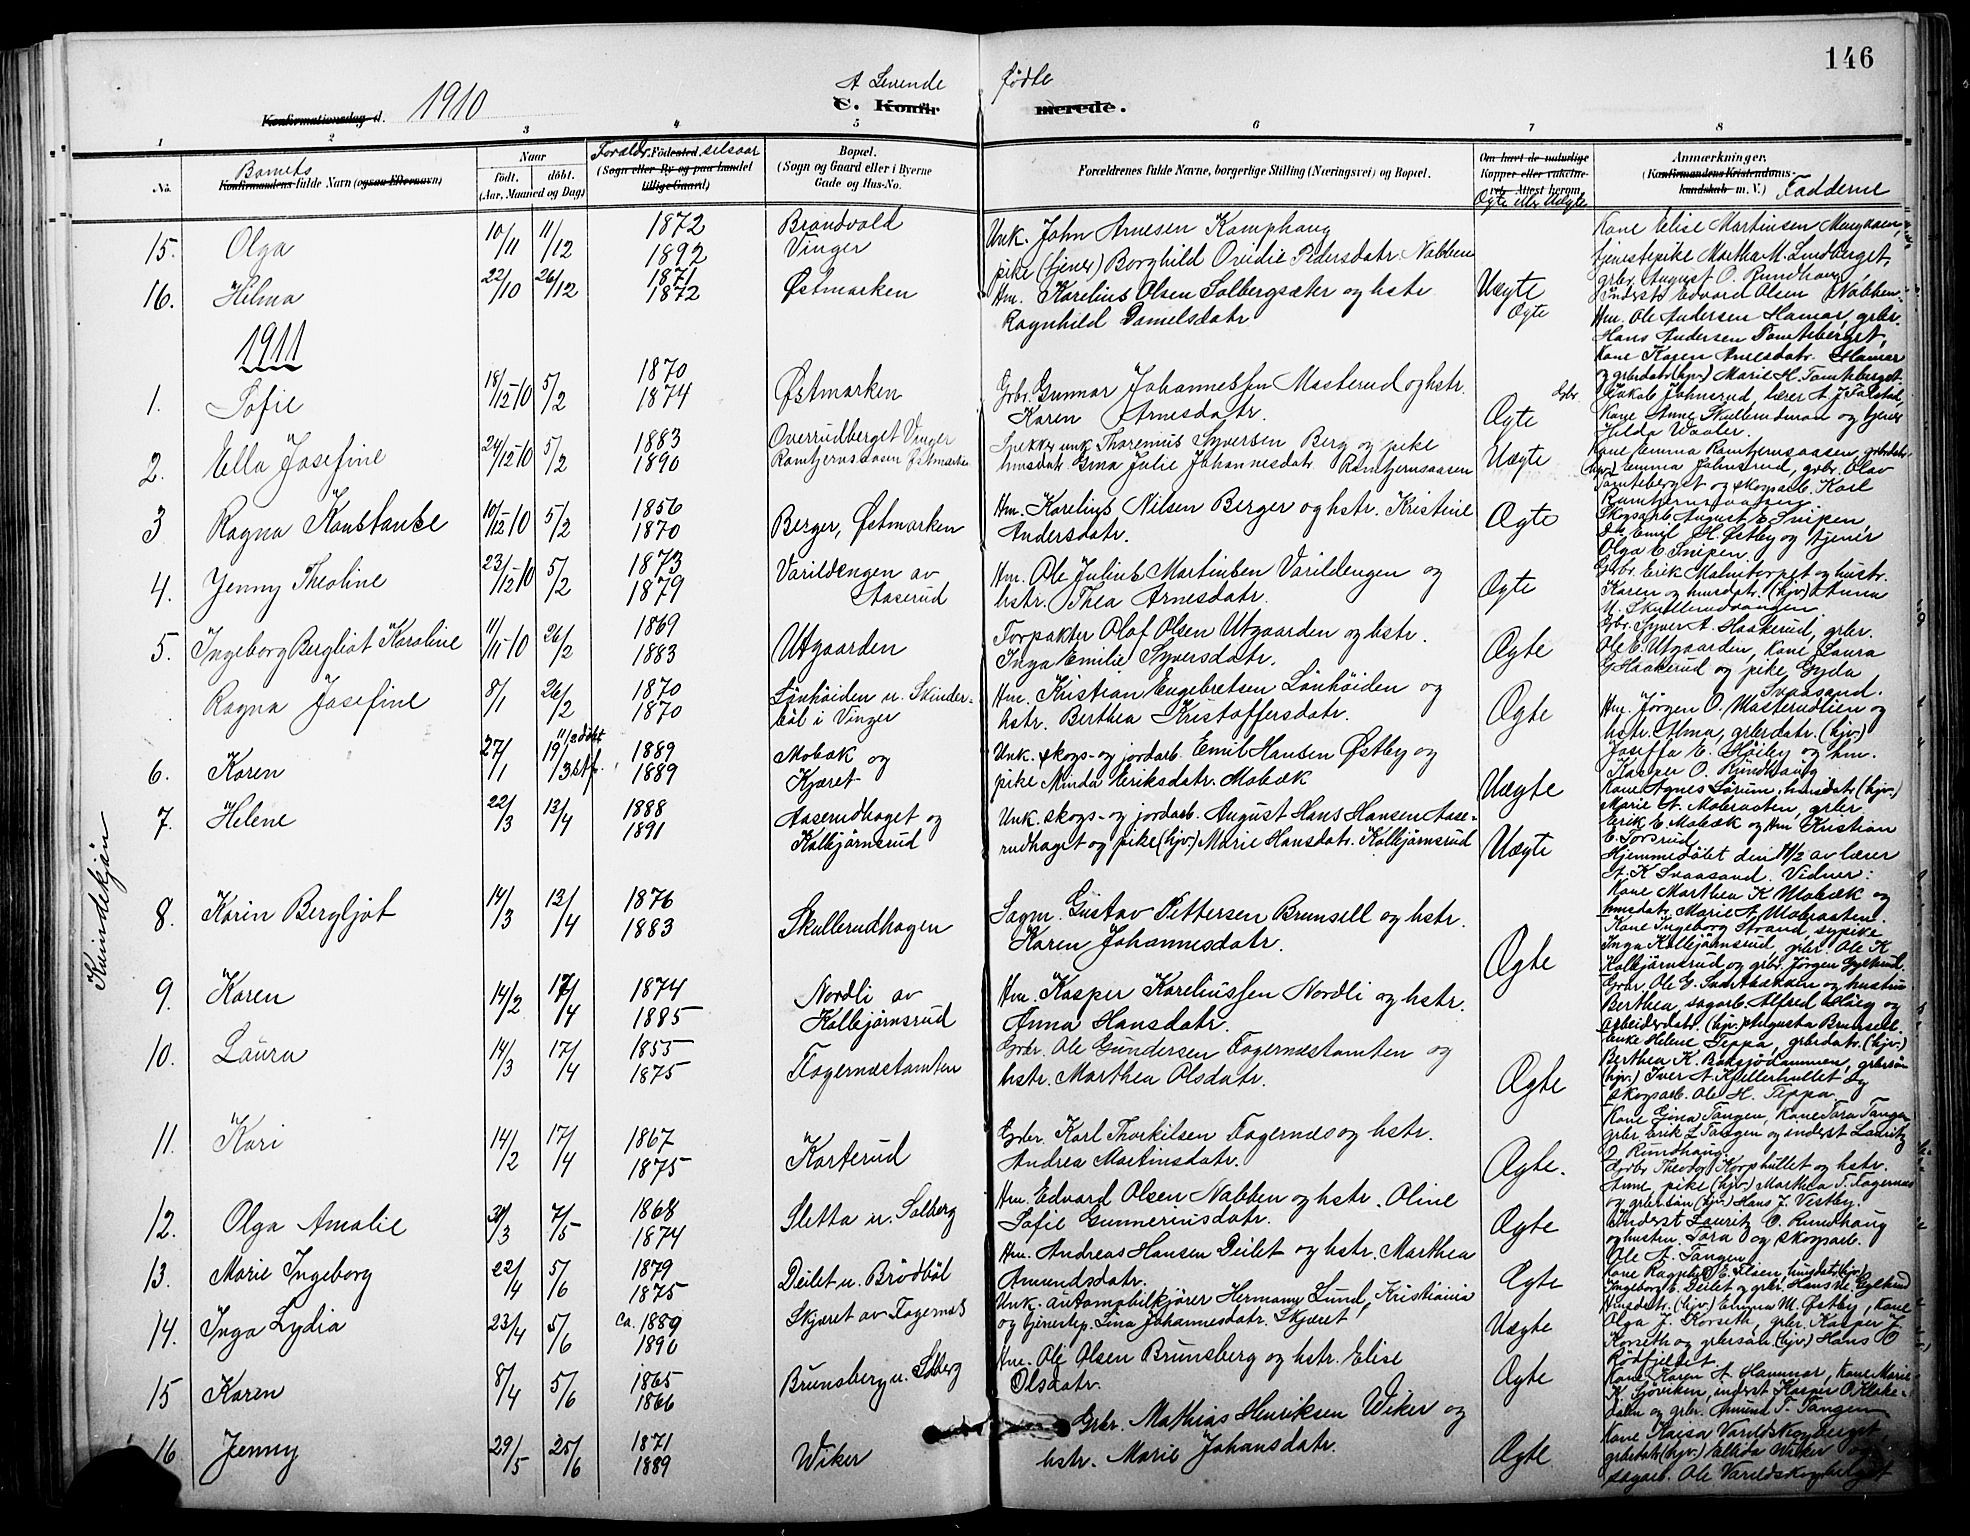 146
1910
A Levende fødte
C. Konfirmerede.
Konfirmationsdag d.
1 2 3 4 5 6 7 8
No.
Barnets
Konfirmandens fulde Navn (ogsaa Efternavn)
Naar
født. døbt.
(Aar, Maaned og Dag)
Forældr. Fødested selsaar
(Sogn eller By og paa Landet tillige Gaard)
Bopæl.
(Sogn og Gaard eller i Byerne Gade og Hus-No.
Forældrenes fulde Navne, borgerlige Stilling (Næringsvei) og Bopæl.
Om havt de naturlige Kopper eller vakcineret. Attest herom
Ægte eller Uægte
Anmærkninger.
(Konfirmandens Kristendomskundskab m. V.) Fadderne
Kvindekjøn
15. Olga 10/11 11/12 1872 1892 Brandvold Vinger
Unk. John Arnesen Kamphaug
pike (tjener) Borghild Ovidie Pedersdatr. Nabben Uægte
Kone Elise Martinsen
tjenestepike Martha M. Lindberget,
grbr. August O. Rundhaug,
Inderst Edvard Olsen Nabben
16. Hilma 22/10 26/12 1871 1872 Østmarken
Hm. Karelius Olsen Solbergsæter og hstr.
Ragnhild Danielsdatr. Ægte
Hm. Ole Andersen Hamar, grbr.
Hans Andersen Tomteberget,
Kone Karen Arnesdatr. Hamar
og grbrdatr. (hjv.) Marie H. Tomteberget
1911
1. Sofie 18/12-10 5/2 1870 1874 Østmarken
Grbr. Gunnar Johannessen Masterud og hstr.
Karen Arnesdatr. Ægte
Grbr. Jakob Johnsrud, lærer A. J.
Kone Anne Skullerudmoen og tjener
Hilda Waaler.
2. Ella Josefine 24/12-10 5/2 1883 1890 Overrudberget Vinger
Ramtjernsaasen Østmarken
unk Thorenius Syversen Berg og pike
hmsdatr. Gina Julie Johannesdatr. Ramtjernsaasen Uægte
Kone Emma Ramtjernsaasen, grbrdatr.
(hjv.) Emma Johnsrud, grbr. Olav
Tomteberget og skogsarb. Karl
Ramtjernsaasen
3 Ragna Konstanse 10/12-10 5/2 1856 1870 Berger, Østmarken
Hm. Karelius Nilsen Berger og hstr. Kristine
Andersdatr. Ægte
Skogsarb. August E. Snipen,
Do. Emil H. Østby og tjener
Olga E. Snipen.
4. Jenny Theoline 23/12-10 5/2 1873 1879 Varildengen av
Aaserud
Hm. Ole Julius Martinsen Varildengen og
hstr. Thea Arnesdatr. Ægte
Grbr. Erik Malmtorpet og hustr.
Karen og hmsdatr. (hjv.) Anna
M. Skullerudvangen.
5. Ingeborg Bergliot Karoline 11/11-10 26/2 1869 1883 Utgaarden
Forpakter Olaf Olsen Utgaarden og hstr.
Inga Emilie Syversdatr. Ægte
Gbr. Syver A. Haakerud, grbr.
Ole E. Utgaarden, Kone Laura
G. Haakerud og pike Gyda
Svaasand.
Ragna Josefine 8/1 26/2 1870 1870 Lønhøiden u. Skinderbøl i Vinger
Hm. Kristian Engebretsen Lønhøiden og
hstr. Berthea Kristoffersdatr. Ægte
Hm. Jørgen O. Masterudlien og
hstr. Alma, grbrdatr. (hjv.)
Josefa E. Høiby og hm.
Kasper O. Rundhaug
6. Karen 27/1 11/2 døbt 19/3 stf. 1889 1889 Mobæk og
Kjæret
Unk. skogs- og jordarb. Emil Hansen Østby og
pike Minda Eriksdatr. Mobæk Uægte
Kone Agnes Sørum, hmsdatr. (hjv.)
Marie A. Mobraaten, grbr.
Erik E. Mobæk og Hm. Kristian
E. Torsrud.
Hjemmedøbt den 11/2 av lærer
A. K. Svaasand. Vidner:
Kone Marthea K. Mobæk og
hmsdatr. Marie A. Mobraaten.
7. Helene 22/3 13/4 1888 1891 Aaserudhaget og
Kolbjørnsrud
Unk. skogs- og jordarb. August Hans Hansen Aaserudhaget og pike (hjv.) Marie Hansdatr. Kolbjørnsrud Uægte
Kone Ingeborg Strand, sypike
Inga Kolbjørnsrud, grbr. Ole K.
Kolbjørnsrud og grbr. Jørgen Gylterud.
8. Karin Bergljot 14/3 13/4 1876 1883 Skullerudhagen
Sagm. Gustav Pettersen Brunsell og hstr.
Karen Johannesdatr. Ægte
Grbr. Ole G. og hustru
Berthea, sagarb. Alfred Høieg og
arbeiderdatr. (hjv.) Augusta Brunsell.
9. Karen 14/2 17/4 1874 1885 Nordli av
Kolbjørnsrud
Hm. Kasper Kareliussen Nordli og hstr.
Anna Hansdatr.
Enke Helene Teppa, grbrdatr. (hjv.)
Berthea K. Baksjødammen, grbrsøn
(hjv.) Iver A. Kjellerhullet og
skogsarb. Ole H. Teppa.
10. Laura 14/3 17/4 1855 1875 Fagernæstomten
Grbr. Ole Gundersen Fagernæstomten og
hstr. Marthea Olsdatr. Ægte
Kone Gina Tangen, Kone Tora Tangen
grbr. Erik L. Tangen og inderst Lauritz
O. Rundhaug.
11. Kari 14/2 17/4 1867 1875 Korterud
Grbr. Karl Thorkilsen Fagernæs og hstr.
Andrea Martinsdatr. Ægte.
Grbr. Theodor Korphullet og hstr.
Anne, pike (hjv.) Marthea T. Fagernæs
og grbrsøn (hjv.) Hans J. Vestby.
12. Olga Amalie 31/3 7/5 1868 1874 Sletta u. Solberg
Hm. Edvard Olsen Nabben og hstr. Oline
Sofie Gunneriusdatr. Ægte
Inderst Lauritz O. Rundhaug
og hustru Tora og skogsarb.
Ole A. Tangen
13. Marie Ingeborg 22/4 5/6 1879 1875 Deilet u. Brødbøl
Hm. Andreas Hansen Deilet og hstr. Marthea
Amundsdatr. Ægte
Kone Ragnhild E. Olsen, hmsdatr. (hjv.)
Ingeborg E. Deilet og grbr. Hans Gylterud
14. Inga Lydia 23/4 5/6 ca. 1889 1890 Skjæret av Fagernæs
Unk. automobilkjører Hermann Lund, Kristiania
og tjenestep. Lina Johannesdatr. Skjæret Uægte
Hmsdatr. (hjv.) Emma M. Østby, Kone
Olga J. Korseth, grbr. Kasper J.
Korseth og grbrsøn (hjv.) Hans O.
Rødfjellet.
15 Karen 8/4 5/6 1865 1866 Brunsberg u. Solberg
Hm. Ole Olsen Brunsberg og hstr. Elise
Olsdatr. Ægte
Kone Karen A. Hammar, Kone Marie
K. Sjøviken, inderst Kasper O. Klokedalen og grbr. Amund T. Tangen
16 Jenny 29/5 25/6 1871 1889 Wiker
Grbr. Mathias Henriksen Wiker og
hstr. Marie Johansdatr. Ægte
Kone Kaisa Varildskogberget
grbrdatr. (hjv.) Elida Wiker og
sagarb. Ole Varildskogberget